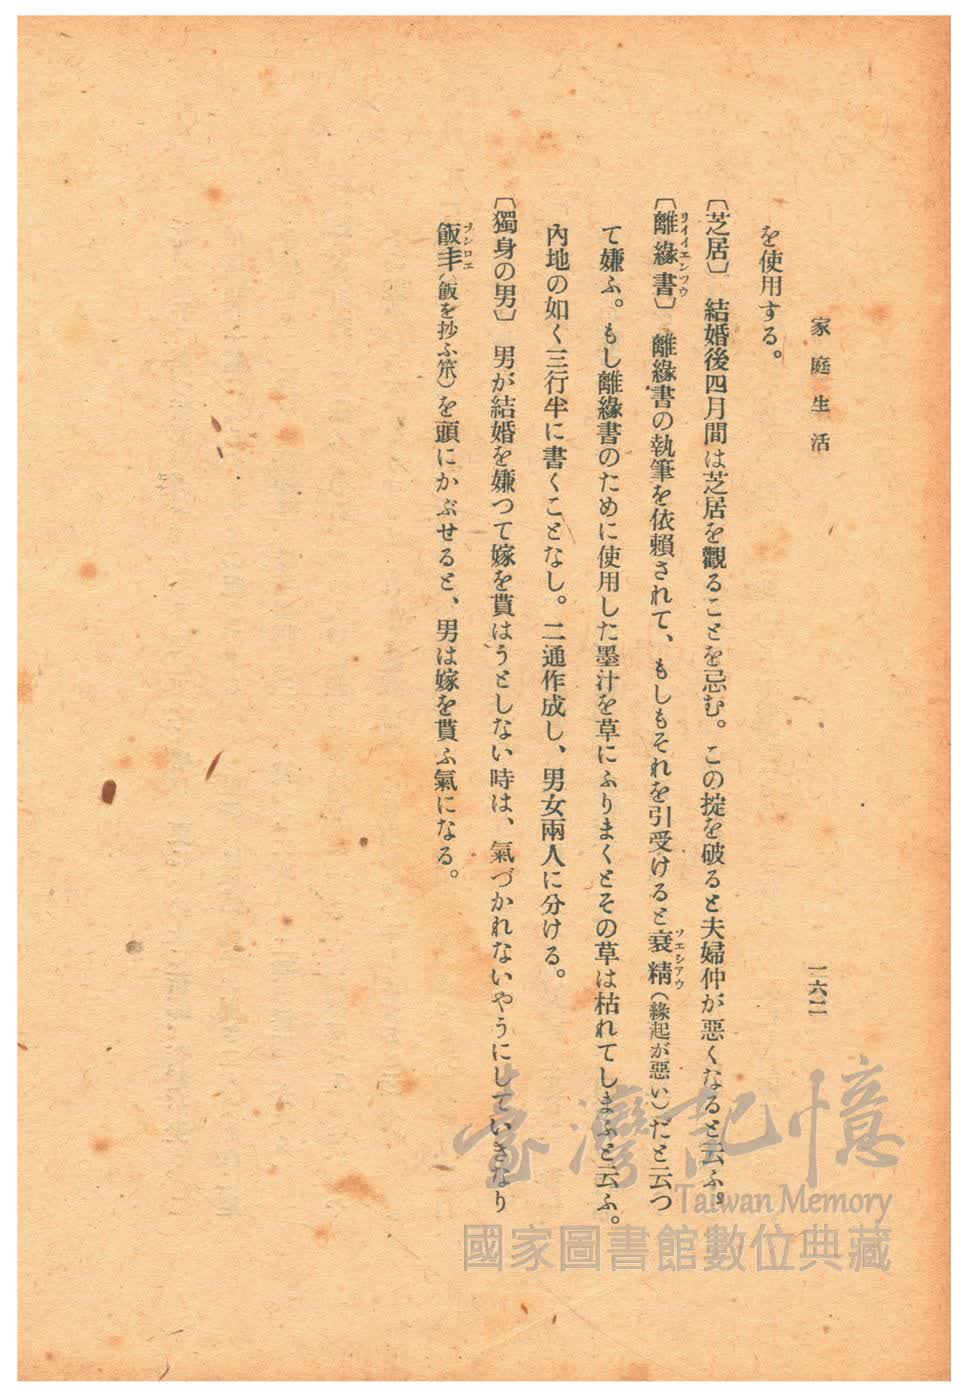 家庭生活
一六二
を使用する。
〔芝居〕 結婚後四月間は芝居を觀ることを忌む。この掟を破ると夫婦仲が惡くなると云ふ。
〔離緣書〕 離緣書の執筆を依賴されて、もしもそれを引受けると衰精(緣起が惡い)だと云つ
て嫌ふ。もし離緣書のために使用した墨汁を草にふりまくとその草は枯れてしまふと云ふ。
內地の如く三行半に書くことなし。二通作成し、男女兩人に分ける。
〔獨身の男〕 男が結婚を嫌つて嫁を貰はうとしない時は、氣づかれないやうにしていきなり
飯丰(飯を抄ふ笊)を頭にかぶせると、男は嫁を貰ふ氣になる。
臺灣記憶
Taiwan Memory
國家圖書館數位典藏